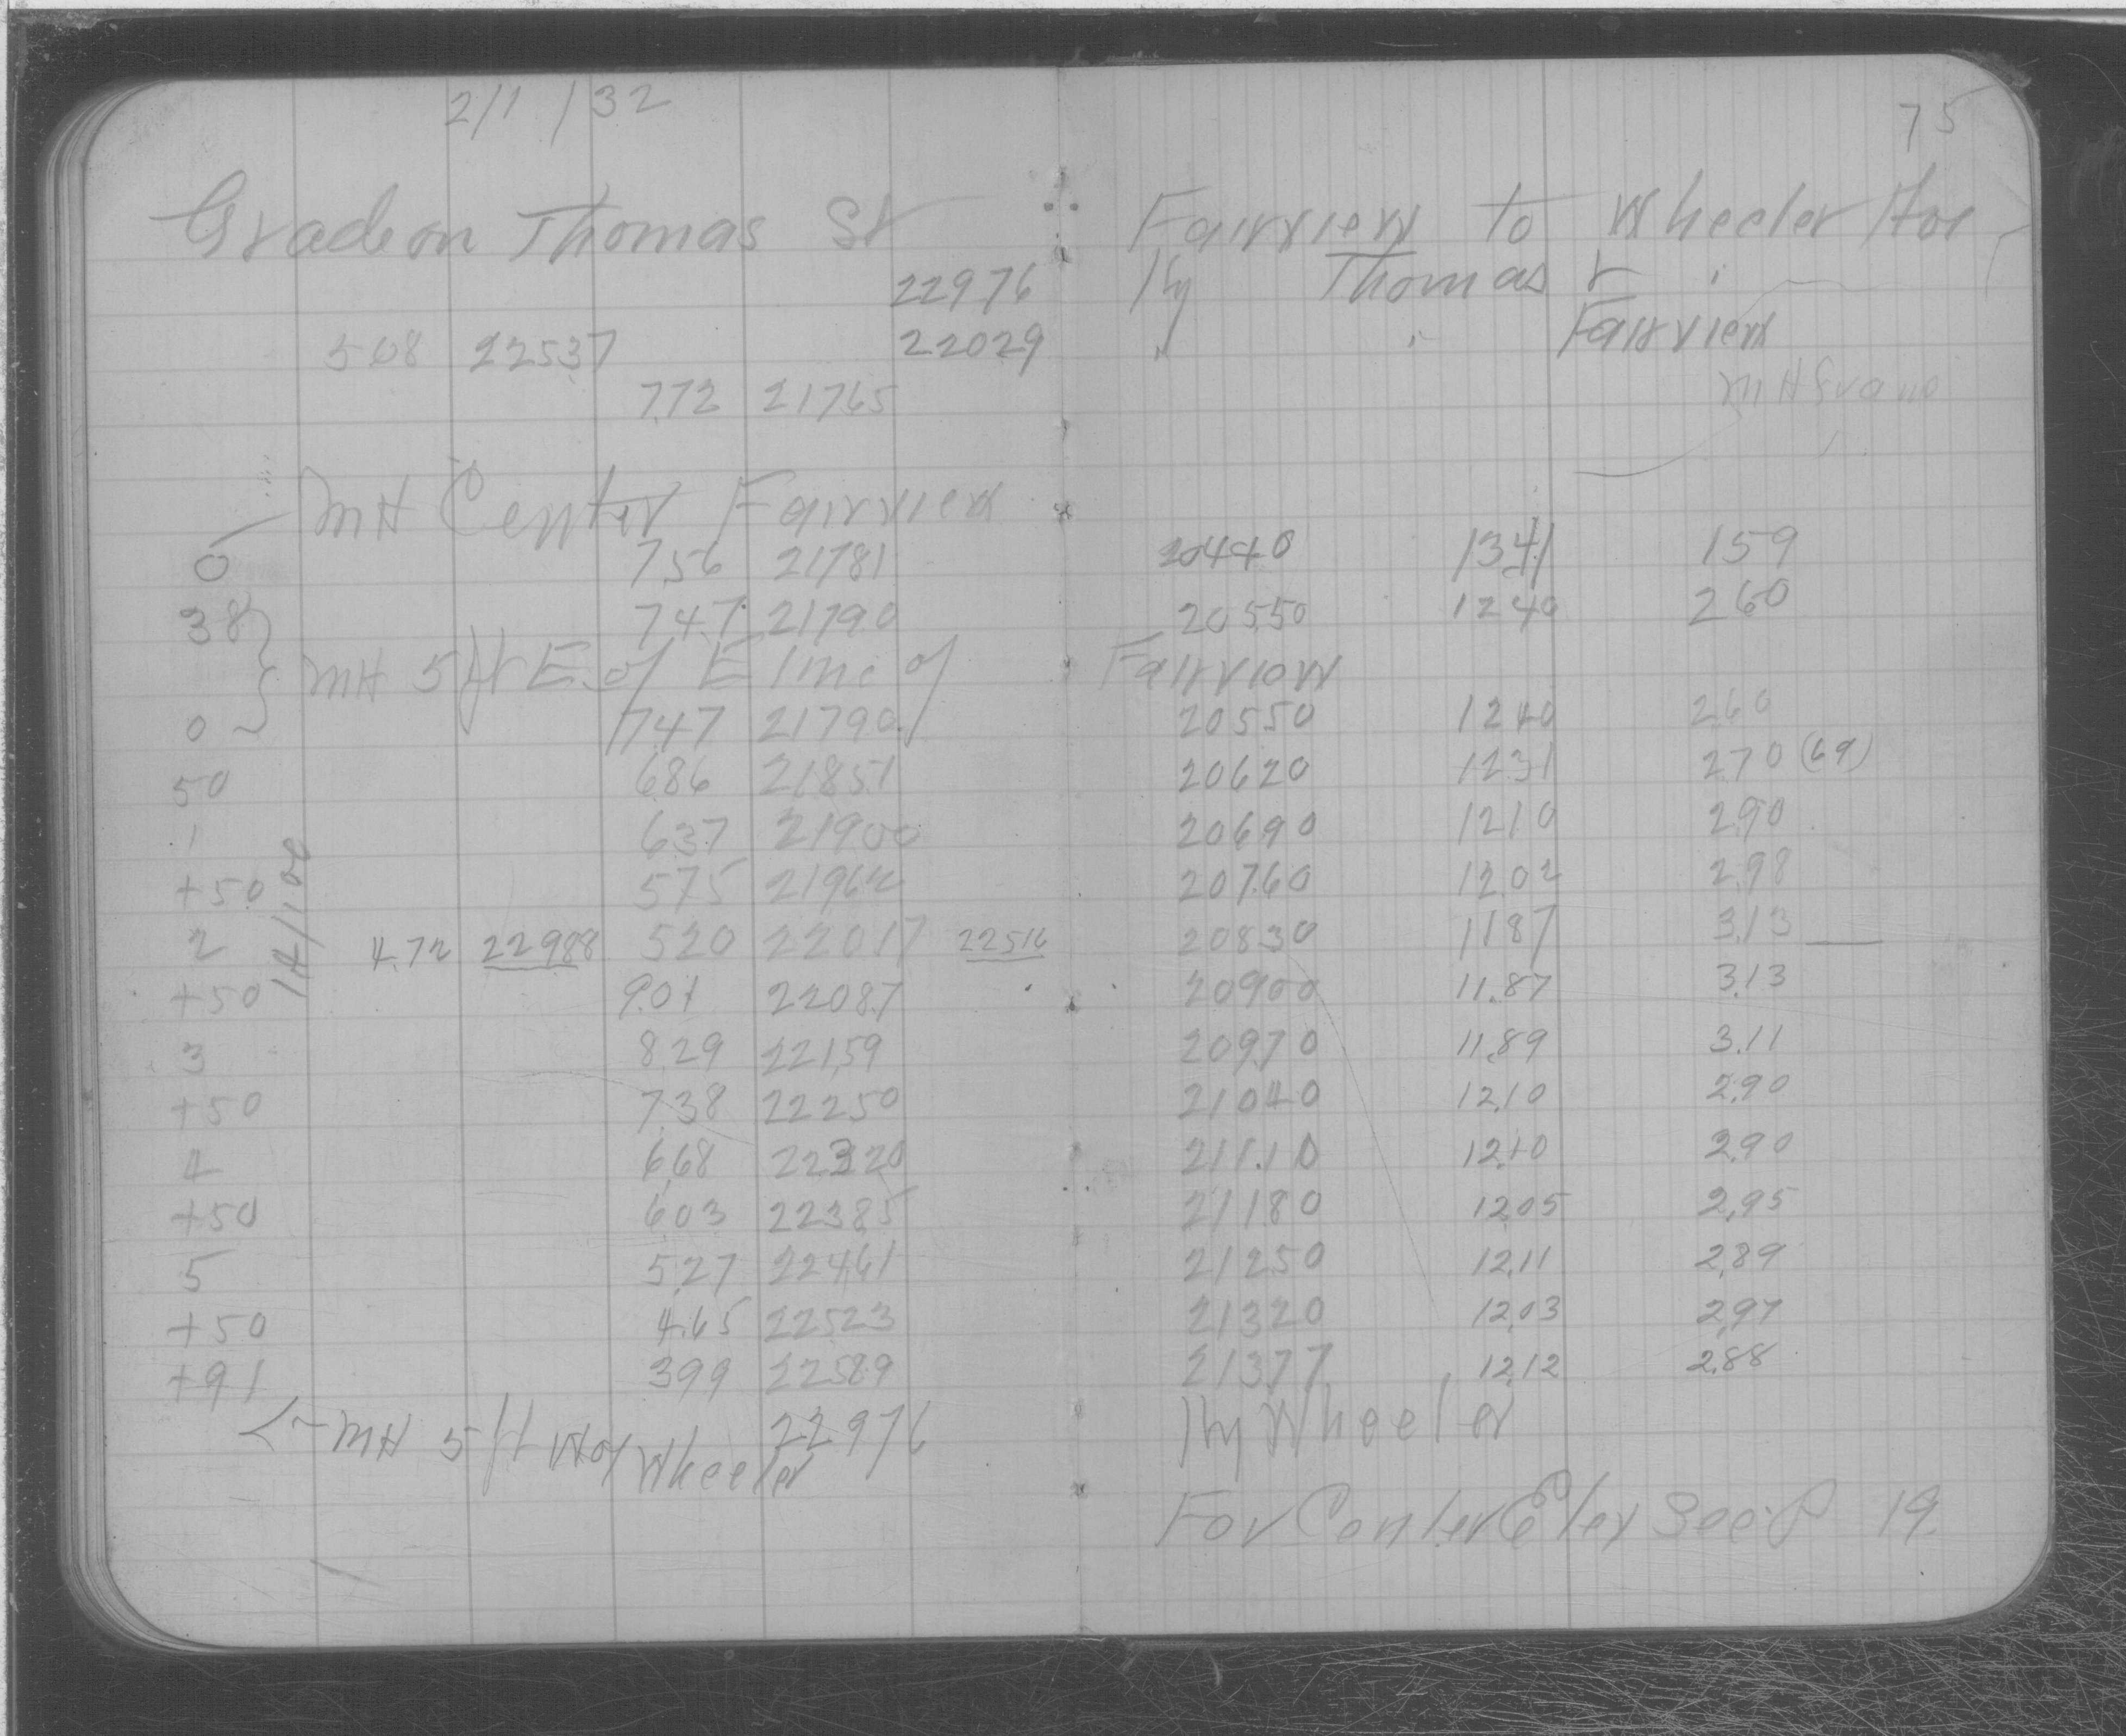 2/1/32
75
Grade on Thomas St Fairview to Wheeler Ave
22976 Hy Thomas &
508 22537 22029 " " Fairview
772 21765
MH Center Fairview
0 756 21781 20440 1341 159
38 747 21790 20550 1240 260
MH 5 ft E. of E line of Fairview
0 747 21790 20550 1240 260
50 686 21851 20620 1231 270 (69)
1 637 21900 20690 1210 290
+50 575 21962 20760 1202 298
2 4.72 22988 520 22017 22516 20830 1187 3.13
+50 9.01 22087 20900 11.87 3.13
3 829 22159 20970 11.89 3.11
+50 738 22250 21040 12.10 2.90
4 668 22320 21110 12.10 2.90
+50 603 22385 21180 12.05 2.95
5 527 22461 21250 12.11 2.89
+50 4.65 22523 21320 12.03 2.97
+91 399 22589 21377 12.12 2.88
14/100
<- MH 5 ft W of Wheeler 22976 Hy Wheeler
For Center Elev See P 19.